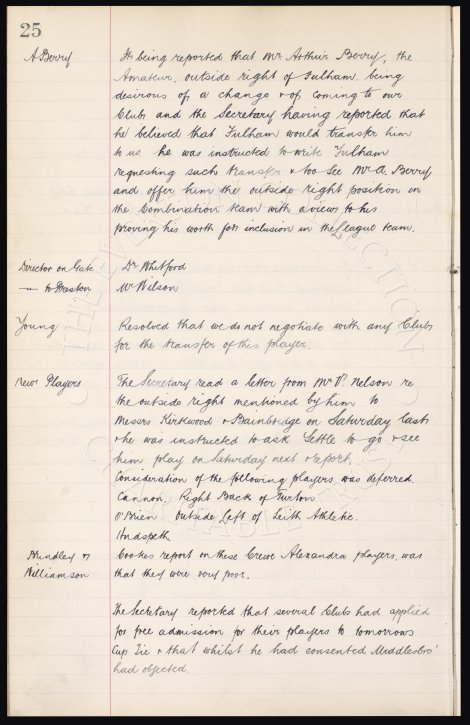 25
A Berry It being reported that Mr Arthur Berry, the
Amateur, outside right of Fulham being
desirous of a change & of coming to our
Club and the Secretary having reported that
he believed that Fulham would transfer him
to us he was instructed to write Fulham
requesting such transfer & to see Mr A. Berry
and offer him the outside right position in
the Combination team with a view to his
proving his worth for inclusion in the League team.
Director on Gate Dr Whitford
— to Preston Mr Wilson
Young Resolved that we do not negotiate with any Club
for the transfer of this player.
New Players The Secretary read a letter from Mr Nelson re
the outside right mentioned by him to
Messrs Kirkwood & Bainbridge on Saturday last
& he was instructed to ask Settle to go & see
him play on Saturday next & report.
Consideration of the following players was deferred.
Cannon, Right Back of Turton
O'Brien outside Left of Leith Athletic.
Hudspeth.
Brindley & Cookes report on these Crewe Alexandra players, was
Williamson that they were very poor.
The Secretary reported that several Clubs had applied
for free admission for their players to tomorrows
Cup Tie & that whilst he had consented Middlesbro'
had objected.